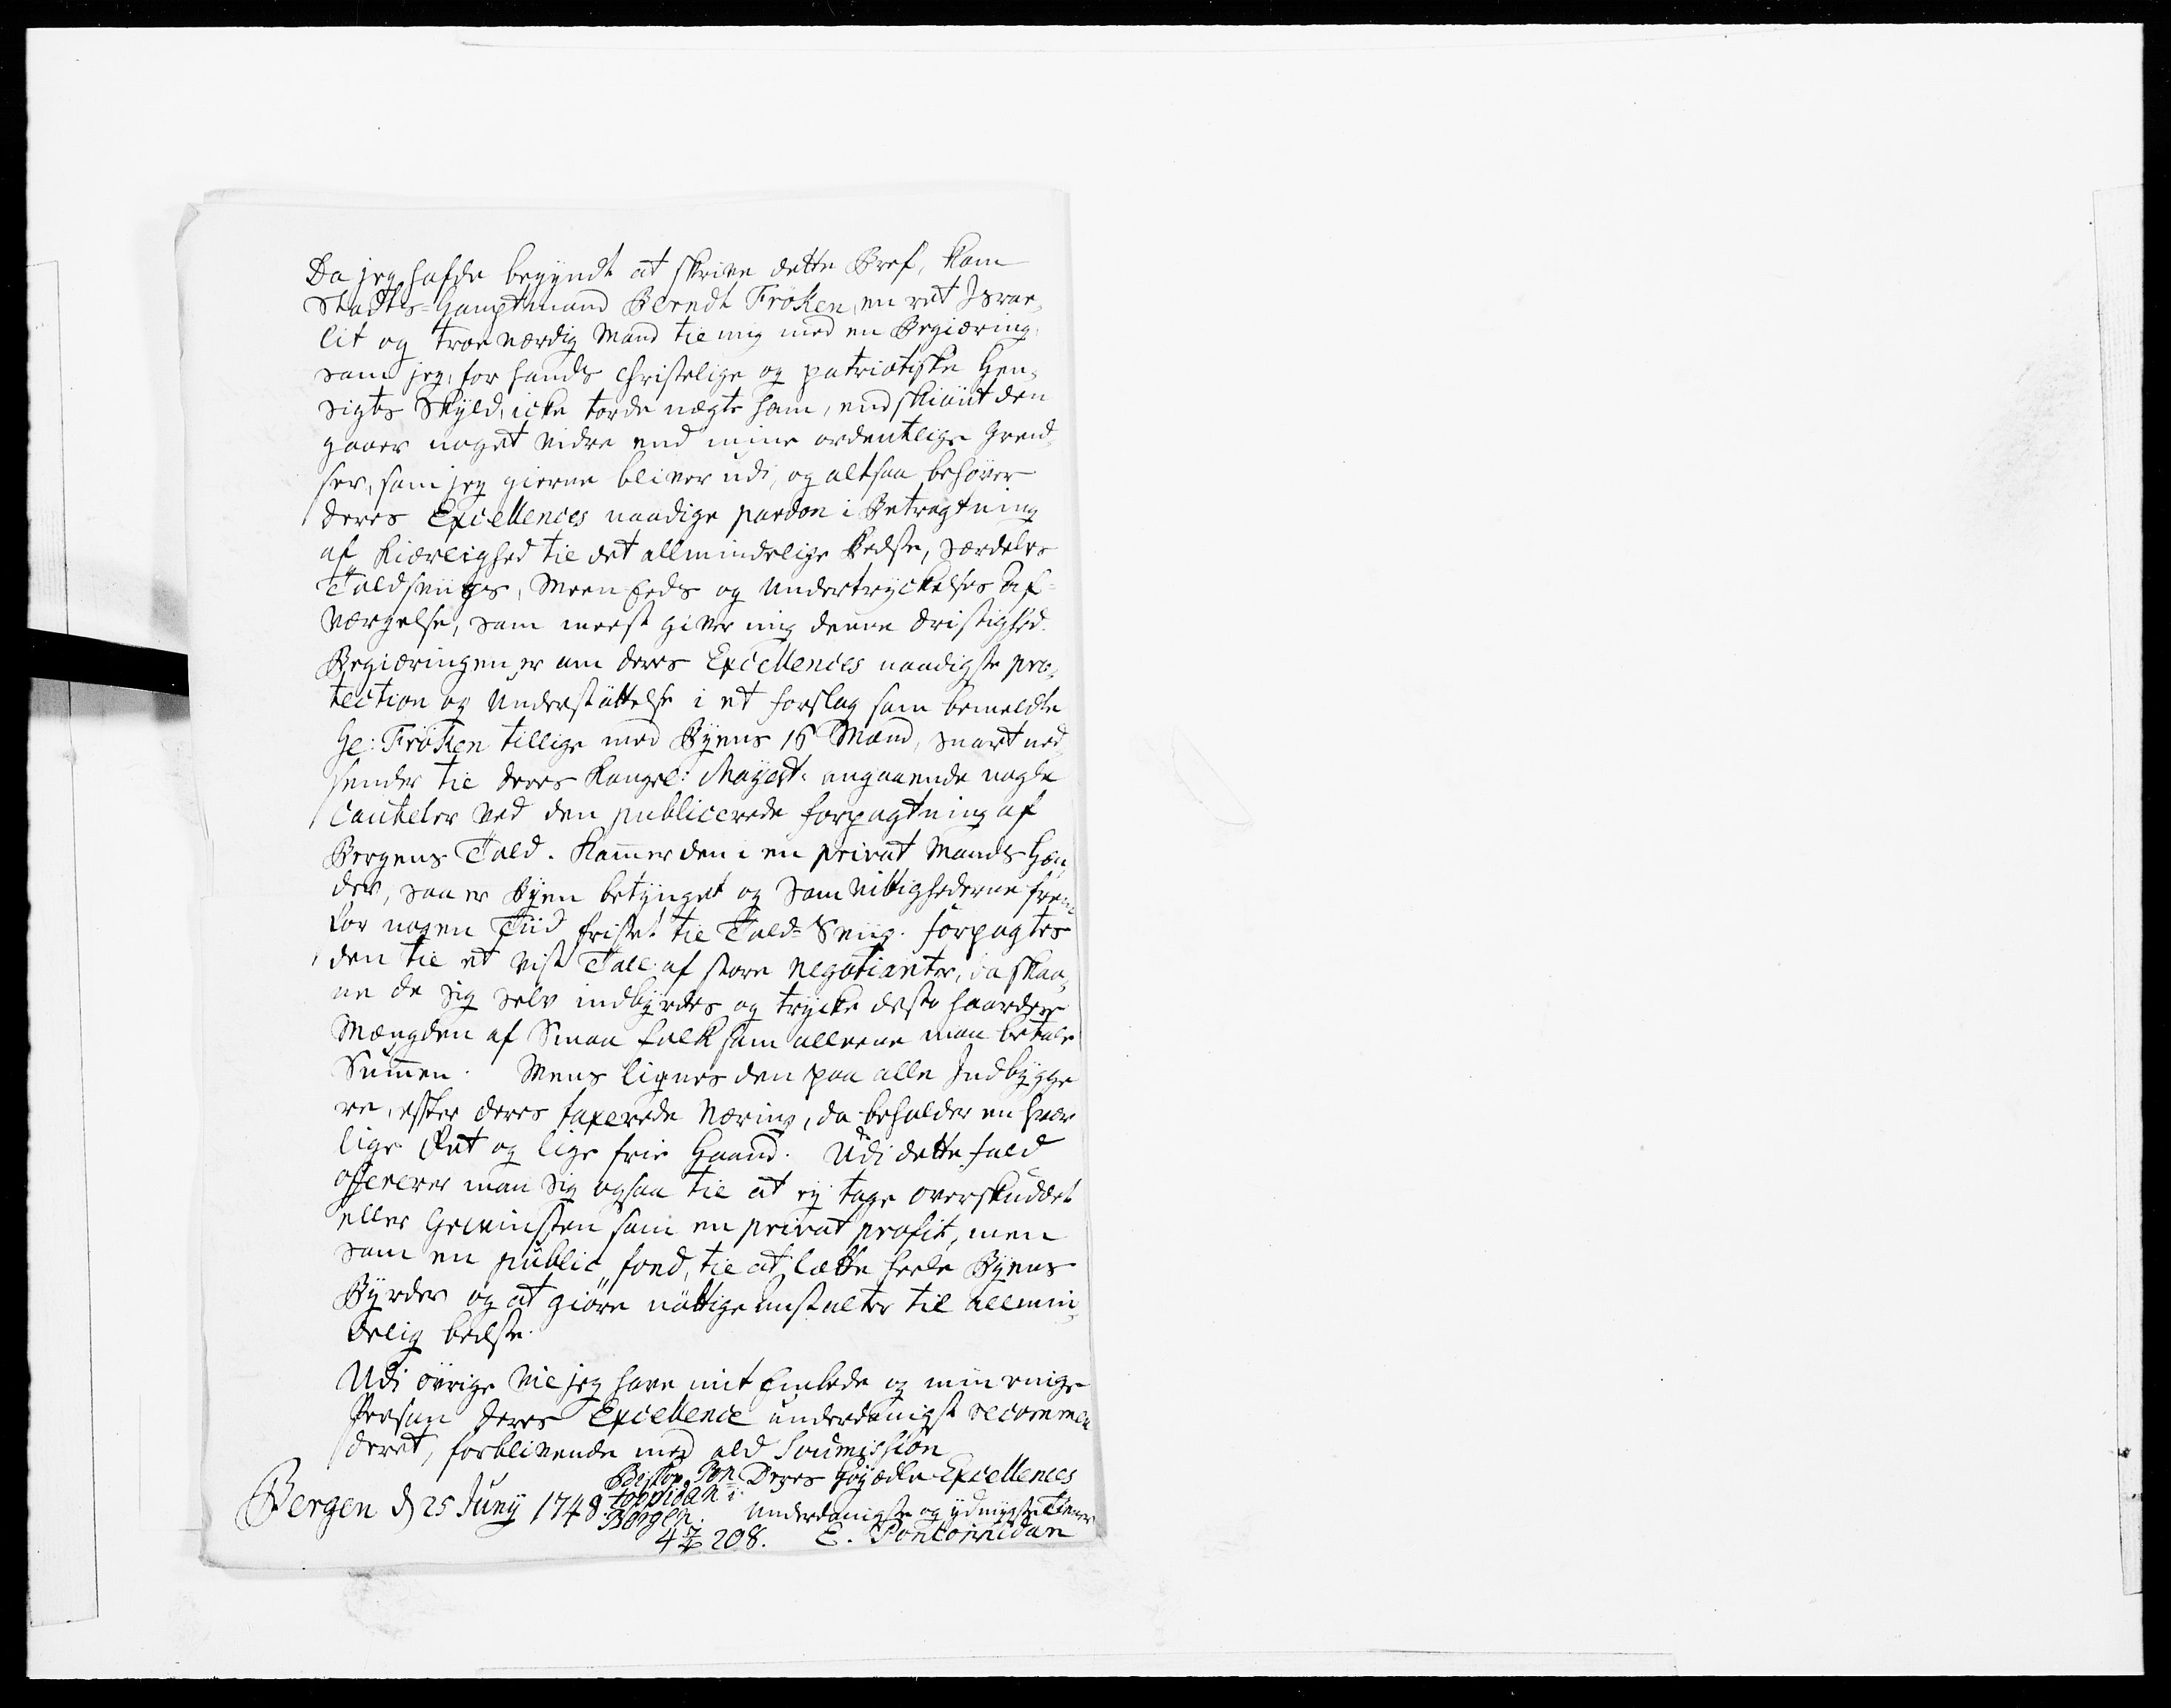 Da jeg hafde begyndt at skrive dette Bref, kom
Stadts-Hauptmand Berndt Fröken, en ret Israe,
lit og troeværdig Mand til mig med en Begiæring,
som jeg, for hands christelige og patriotiske Hen,
sigts Skyld, icke torde nægte ham, endskiönt den
gaaer noget vidre end mine ordentlige Grend,
ser, som jeg gierne bliver udi, og altsaa behøver
Deres Excellences naadige pardon i Betragtning
af Kiærlighed til det allmindelige Bedste, særdeles
Toldsviigs, Meen Eeds og Undertryckelses Af=
værgelse, som meest giver mig denne Dristighed.
Begiæringen er om Deres Excellences naadigste pro,
tection og Understöttelse i et Forslag som bemeldte
Hr: Fröken tillige med Byens 16 Mænd, snart ned
sender til Deres Kongel: Mayest: angaaende nogle
Cauteler ved den publicerede Forpagtning af
Bergens Told. Kommer den i en privat Mands Hæn,
der, saa er Byen betynget og Samvittighederne frem
for nogen Tiid fristet til Told-Sviig. Forpagtes
den til et vist Tall af store Negotianter, da skaa,
ne de sig selv indbyrdes og trycke desto haardere
Mængden af Smaa Folk som alleene maa betale
Summen. Mens lignes den paa alle Indbygge
re, efter deres taxerede Næring, da beholder en hver
lige Ret og lige frie Haand. Udi dette Fald
offererer man sig ogsaa til at ey tage Overskuddet
eller Gevinsten som en privat profit, men
som en public fond, til at lætte heele Byens
Byrder og at giöre nöttige Anstalter til allmin,
delig bedste.
Udi övrige vil jeg have mit Embede og min ringe
Person Deres Excellence underdanigst recommen
deret, forblivende med ald Soumission
Deres Höyædle Excellences
Bergen d 25 Juny 1748.
underdanigste og ydmygste Tiener
E. Pontoppidan
Biskop Pon=
toppidan i
Bergen.
4 7/4 208.